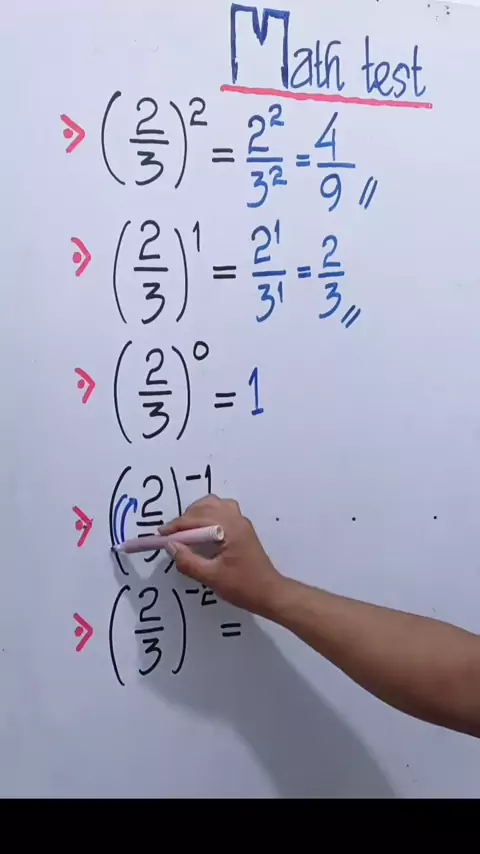 Math test
(2/3)^2 = 2^2/3^2 = 4/9 //
(2/3)^1 = 2^1/3^1 = 2/3 //
(2/3)^0 = 1
(2/3)^-1
(2/3)^-2 =